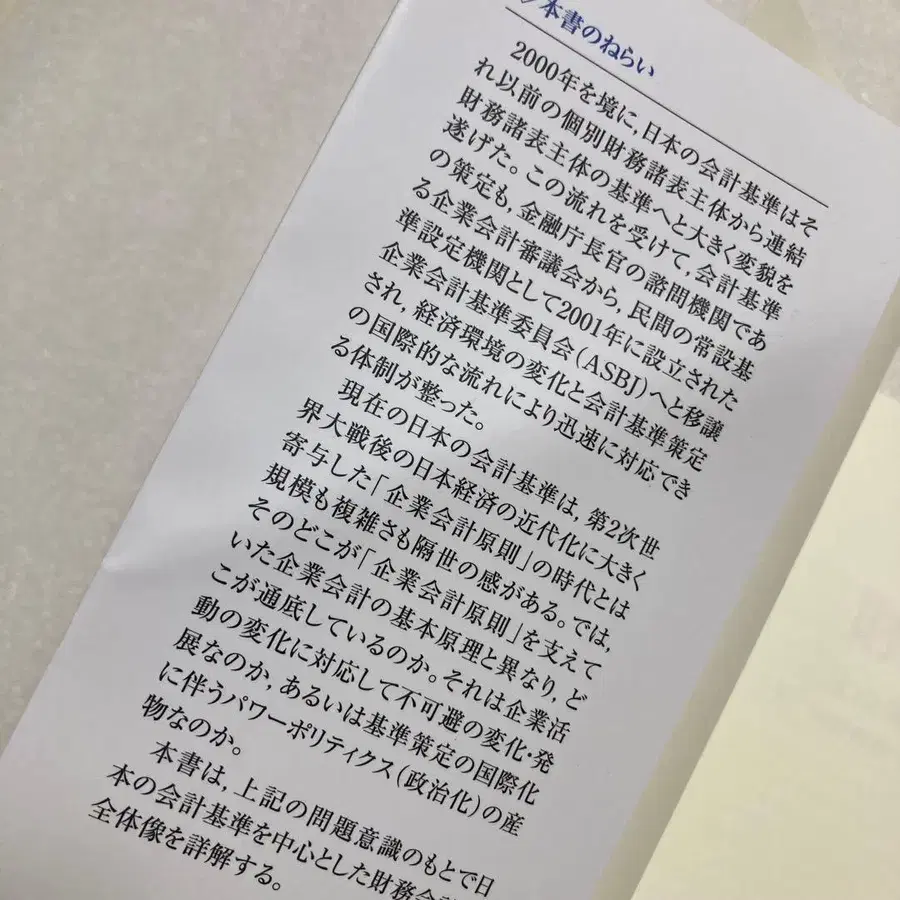 本書のねらい
2000年を境に，日本の会計基準はそ
れ以前の個別財務諸表主体から連結
財務諸表主体の基準へと大きく変貌を
遂げた。この流れを受けて，会計基準
の策定も，金融庁長官の諮問機関であ
る企業会計審議会から，民間の常設基
準設定機関として2001年に設立された
企業会計基準委員会（ASBJ）へと移譲
され，経済環境の変化と会計基準策定
の国際的な流れにより迅速に対応でき
る体制が整った。
現在の日本の会計基準は，第2次世
界大戦後の日本経済の近代化に大きく
寄与した「企業会計原則」の時代とは
規模も複雑さも隔世の感がある。では，
そのどこが「企業会計原則」を支えて
いた企業会計の基本原理と異なり，ど
こが通底しているのか。それは企業活
動の変化に対応して不可避の変化・発
展なのか，あるいは基準策定の国際化
に伴うパワーポリティクス（政治化）の産
物なのか。
本書は，上記の問題意識のもとで日
本の会計基準を中心とした財務会
全体像を詳解する。